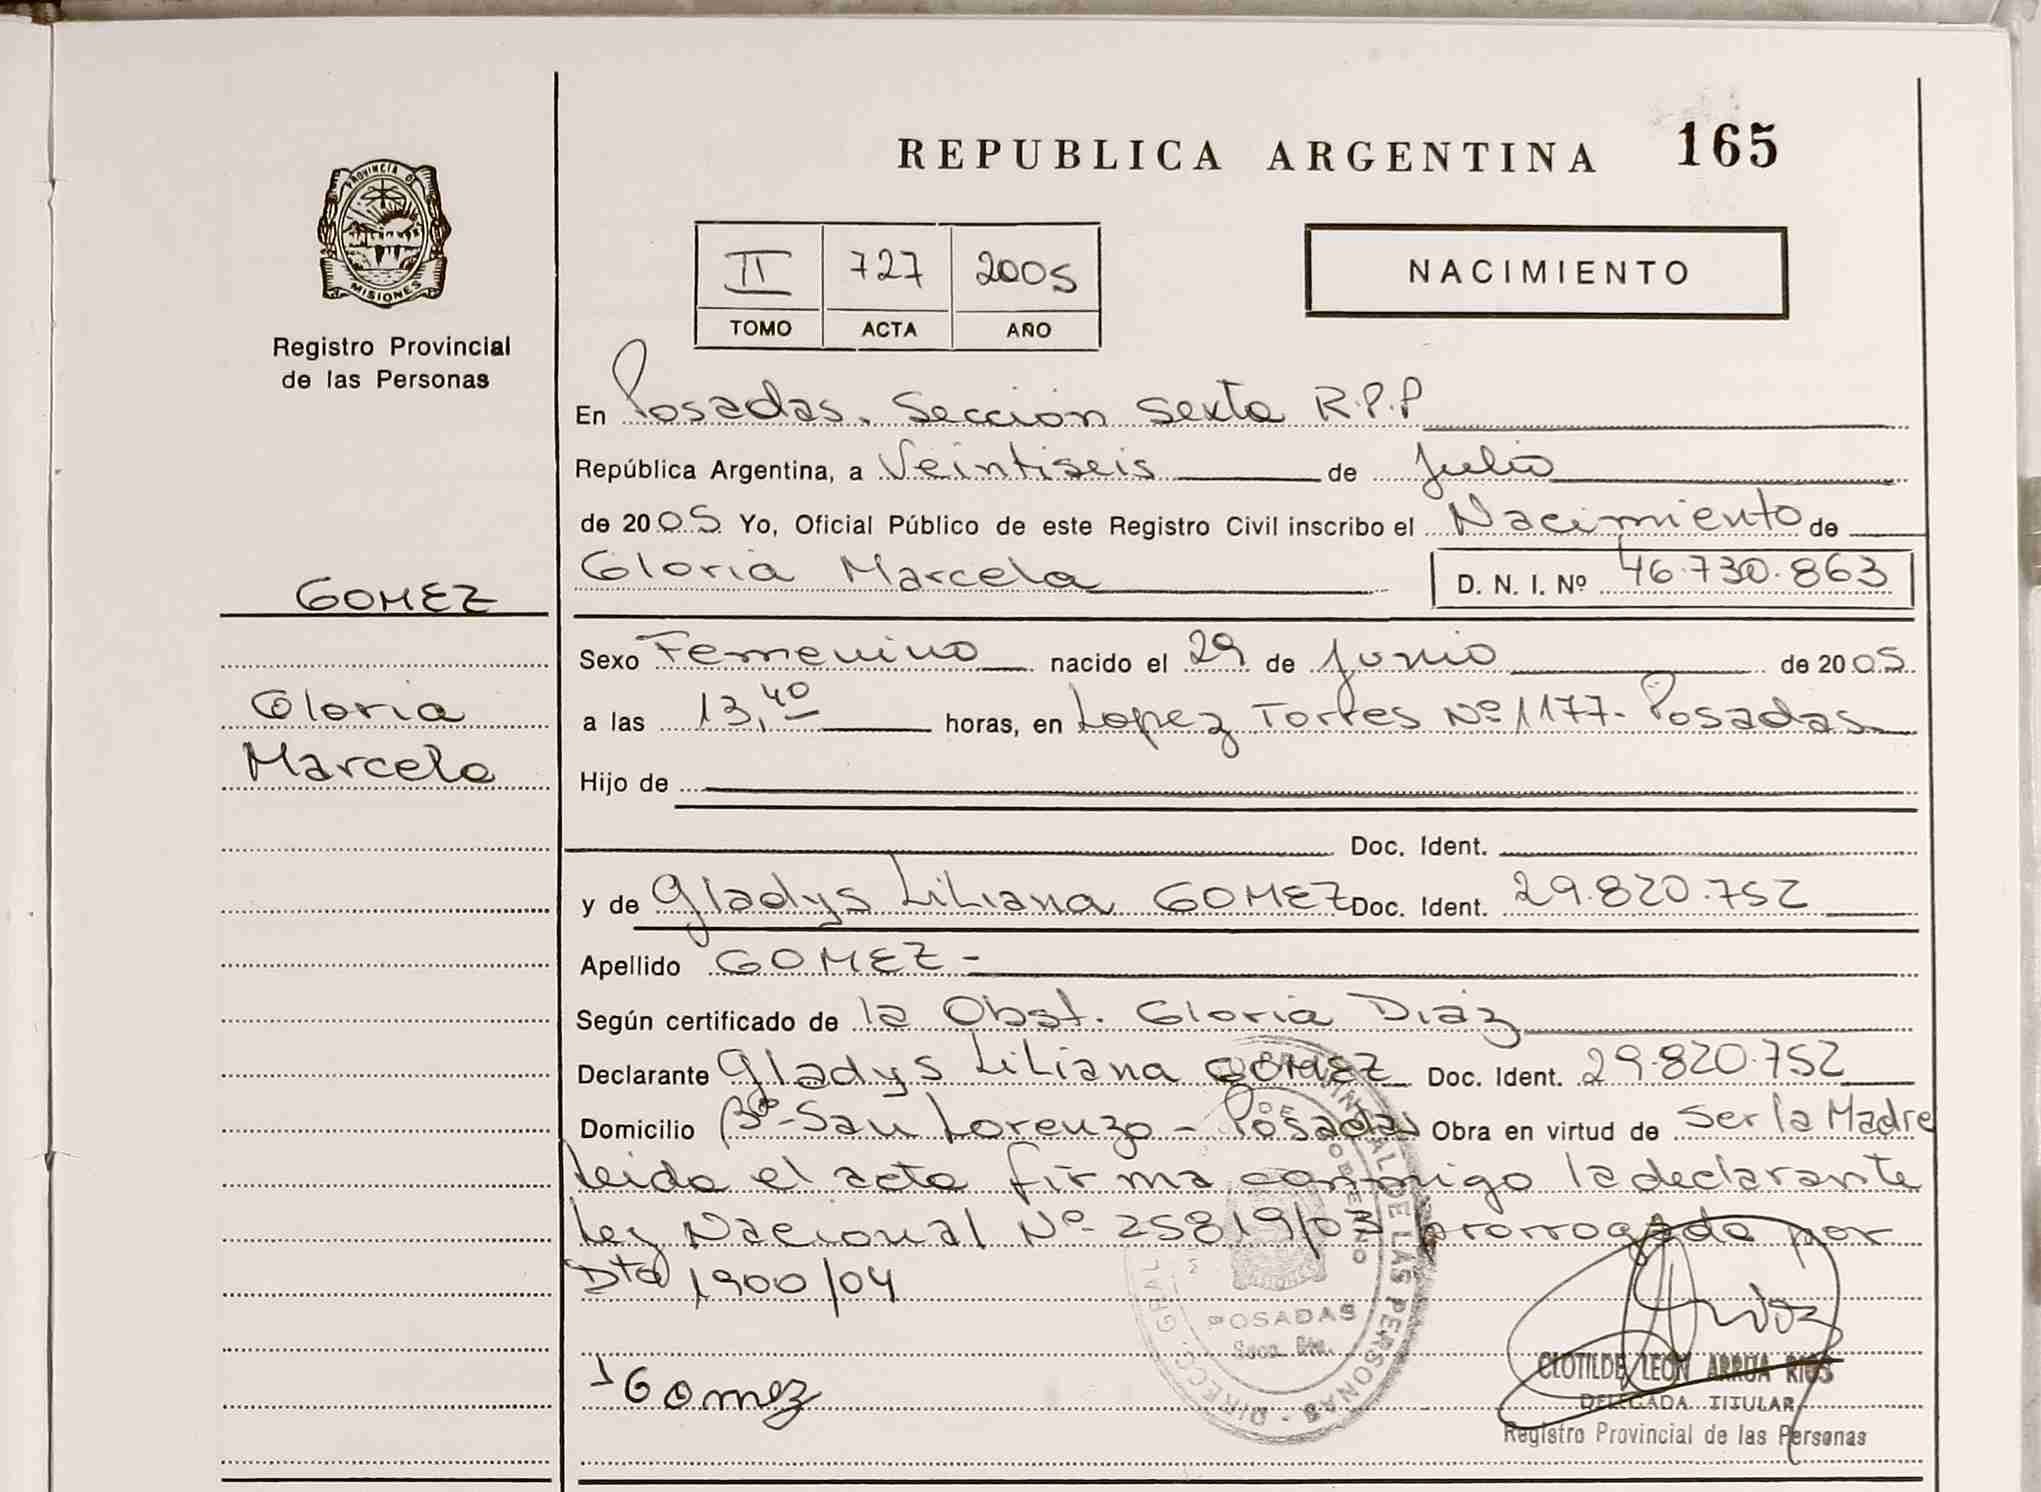 REPUBLICA ARGENTINA 165
PROVINCIA DE
MISIONES
Registro Provincial
de las Personas
II 727 2005
TOMO ACTA AÑO
NACIMIENTO
En Posadas. Sección Sexta R.P.P
República Argentina, a Veintiseis de Julio
de 2005 Yo, Oficial Público de este Registro Civil inscribo el Nacimiento de
Gloria Marcela D. N. I. Nº 46.730.863
GOMEZ
Gloria
Marcela
Sexo Femenino nacido el 29 de Junio de 2005
a las 13,40 horas, en Lopez Torres Nº 1177- Posadas
Hijo de
Doc. Ident.
y de Gladys Liliana GOMEZ Doc. Ident. 29.820.752
Apellido GOMEZ-
Según certificado de la Obst. Gloria Diaz
Declarante Gladys Liliana GOMEZ Doc. Ident. 29.820.752
Domicilio Bº-San Lorenzo - Posadas Obra en virtud de Ser la Madre
Leida el acta firma conmigo la declarante
Ley Nacional Nº 25819/03 prorrogada por
Dto 1900/04
POSADAS
Gomez
CLOTILDE LEON ARRUA RIOS
DELEGADA TITULAR
Registro Provincial de las Personas